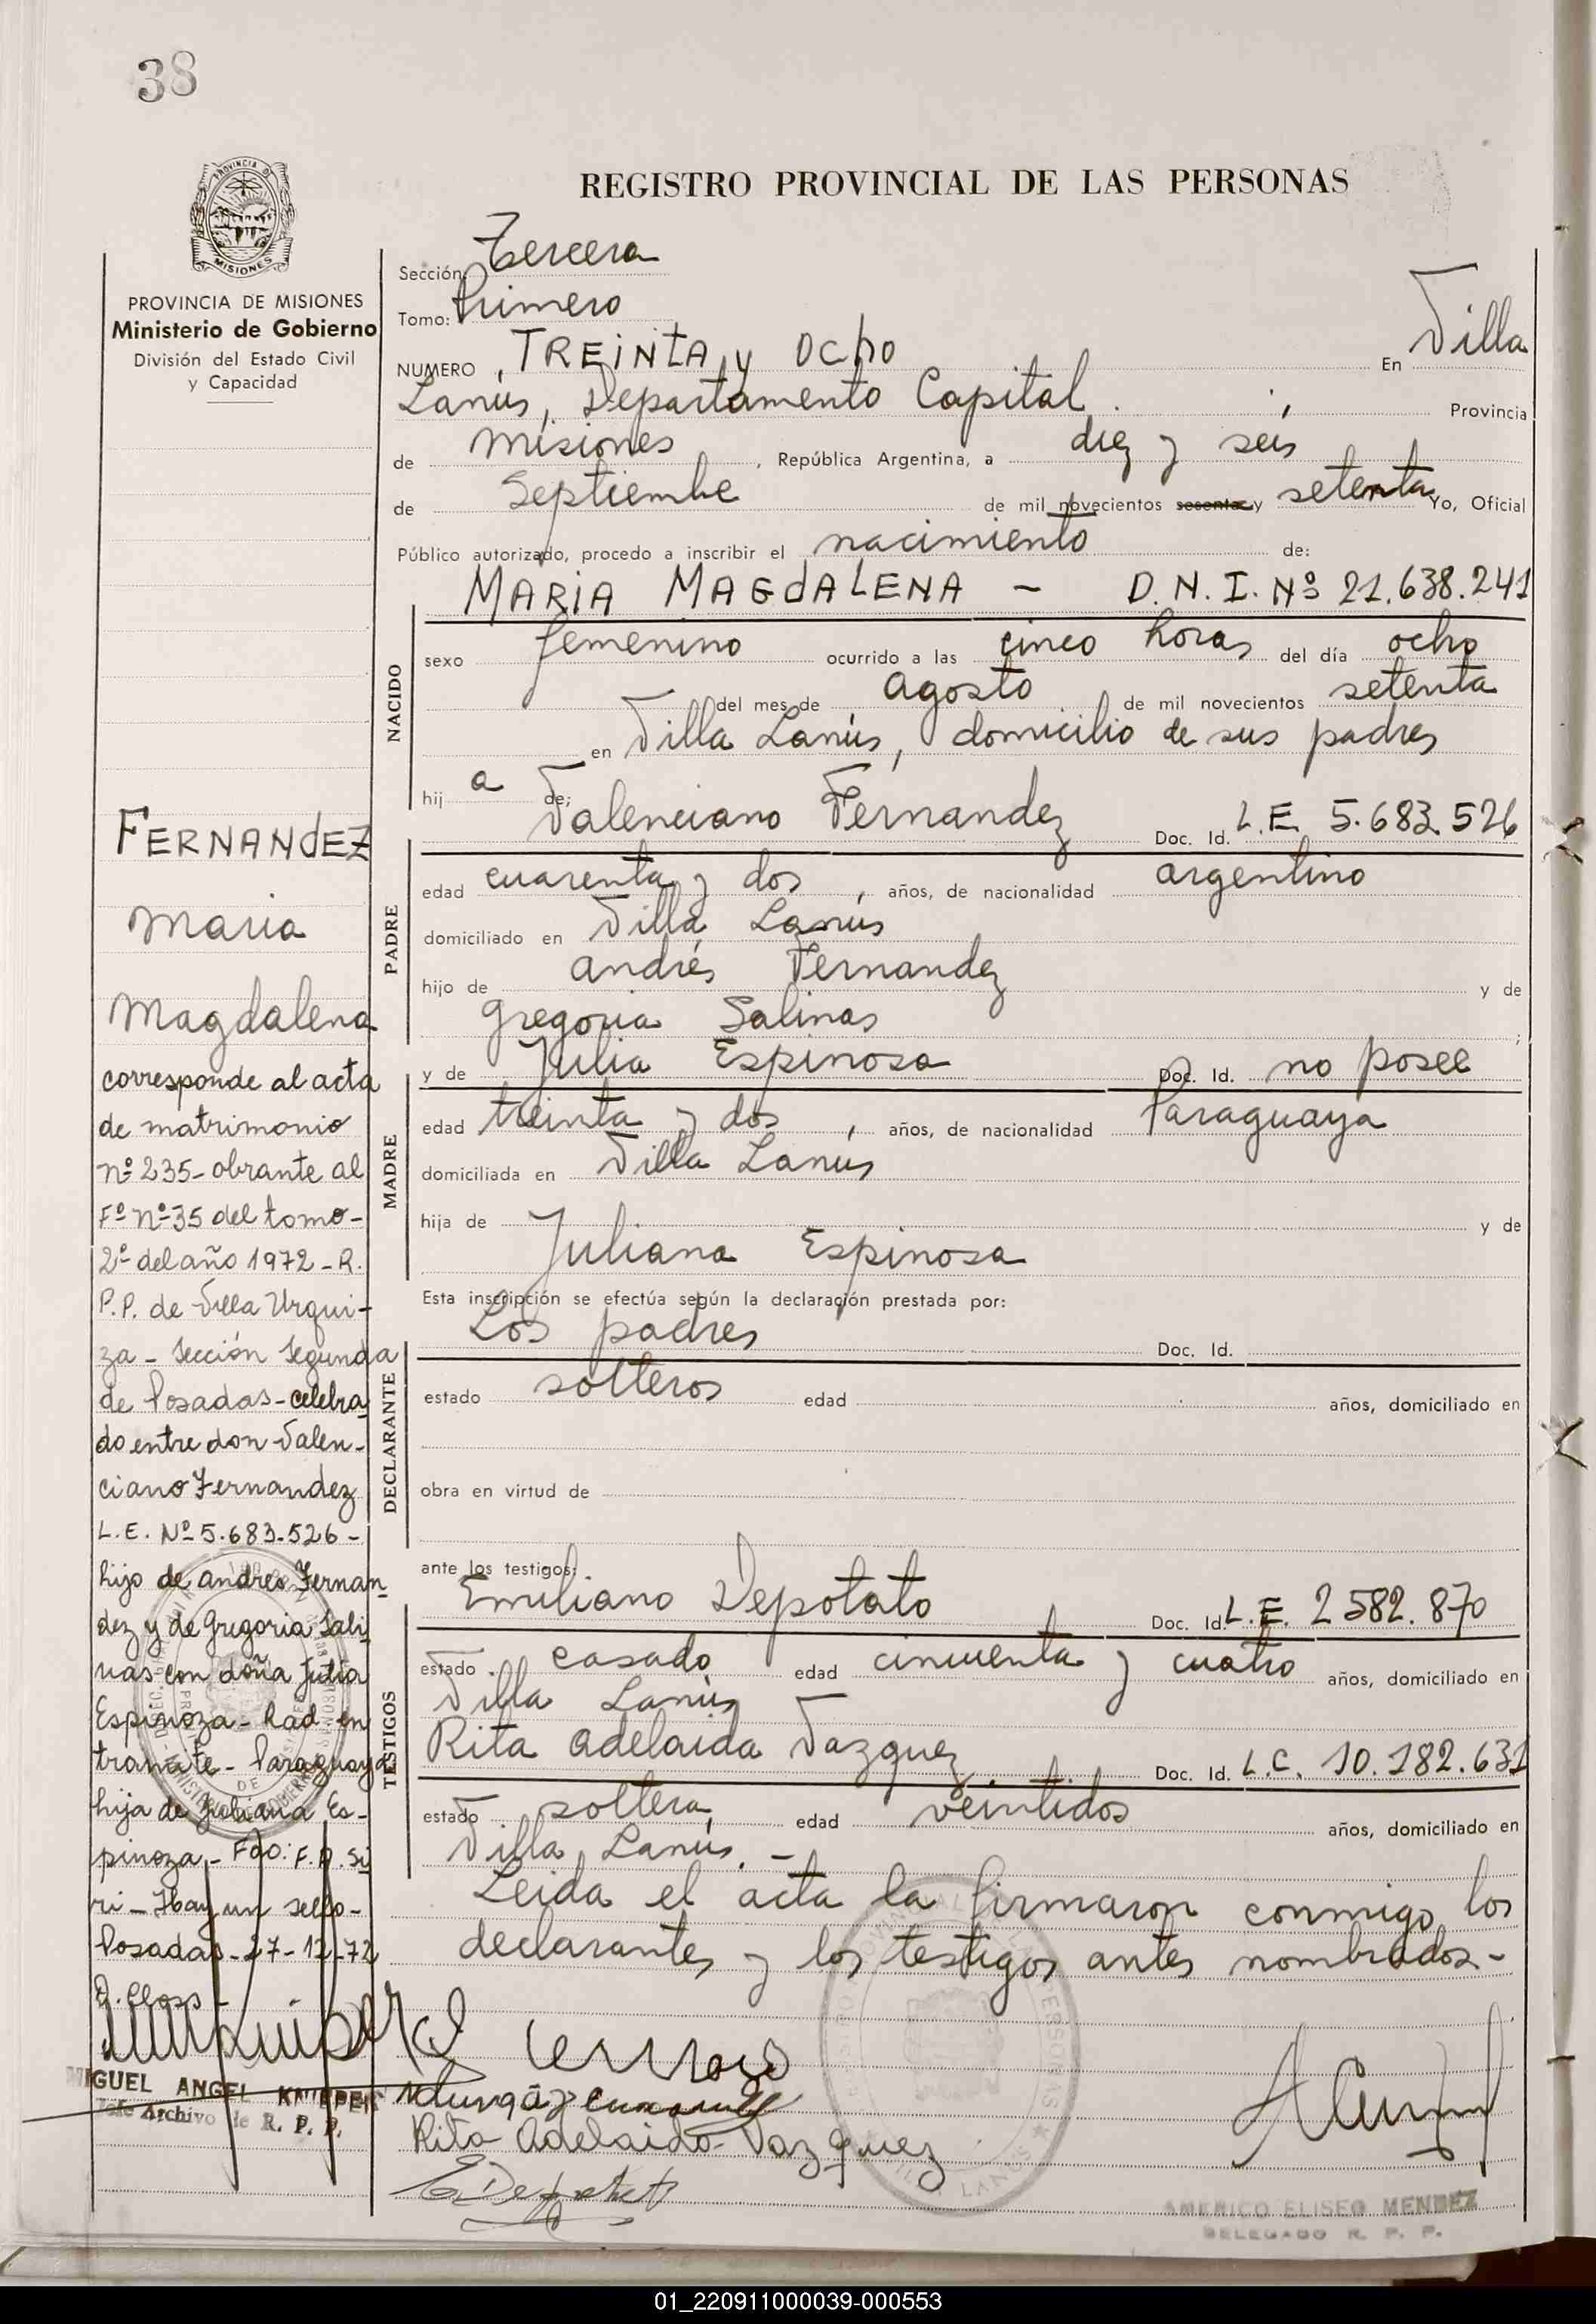 38
PROVINCIA DE
MISIONES
PROVINCIA DE MISIONES
Ministerio de Gobierno
División del Estado Civil
y Capacidad
REGISTRO PROVINCIAL DE LAS PERSONAS
Sección: Tercera
Tomo: Primero
NUMERO TREINTA y OCHO En Villa
Lanús, Departamento Capital. , Provincia
de Misiones, República Argentina, a diez y seis
de Septiembre de mil novecientos sesenta y setenta Yo, Oficial
Público autorizado, procedo a inscribir el nacimiento de:
MARIA MAGdALENA - D.N.I. Nº 21.638.241
NACIDO
sexo femenino ocurrido a las cinco horas del día ocho
del mes de Agosto de mil novecientos setenta
en Villa Lanús, domicilio de sus padres
hij a de: Valenciano Fernandez Doc. Id. L.E. 5.683.526
PADRE
edad cuarenta y dos, años, de nacionalidad argentino
domiciliado en Villa Lanús
hijo de Andrés Fernandez y de
Gregoria Salinas ;
y de Julia Espinosa Doc. Id. no posee
MADRE
edad treinta y dos, años, de nacionalidad Paraguaya
domiciliada en Villa Lanús
hija de y de
Juliana Espinosa
Esta inscripción se efectúa según la declaración prestada por:
Los padres Doc. Id.
DECLARANTE
estado solteros edad años, domiciliado en
obra en virtud de
ante los testigos:
Emiliano Depotato Doc. Id. L.E. 2582.870
TESTIGOS
estado casado edad cincuenta y cuatro años, domiciliado en
Villa Lanús
Rita Adelaida Vazquez Doc. Id. L.C. 10.182.631
estado soltera edad veintidos años, domiciliado en
Villa Lanús. -
Leida el acta la firmaron conmigo los
declarantes y los testigos antes nombrados.-
Rita Adelaida Vazquez
AMERICO ELISEO MENDEZ
DELEGADO R. P. P.
FERNANdEZ
Maria
Magdalena
corresponde al acta
de matrimonio
nº 235- obrante al
Fº nº 35 del tomo-
2º del año 1972 - R.
P.P. de Villa Urqui-
za - Sección Segunda
de Posadas - celebra
do entre don Valen-
ciano Fernandez
L.E. Nº 5.683.526 -
hijo de Andres Fernan
dez y de Gregoria Sali
nas con doña Julia
Espinoza - Rad. en
tramite - Paraguaya
hija de Juliana Es-
pinoza - Fdo: F. A. Si
ri - Hay un sello -
Posadas - 27-12-72
MIGUEL ANGEL
Jefe Archivo de R. P. P.
01_220911000039-000553